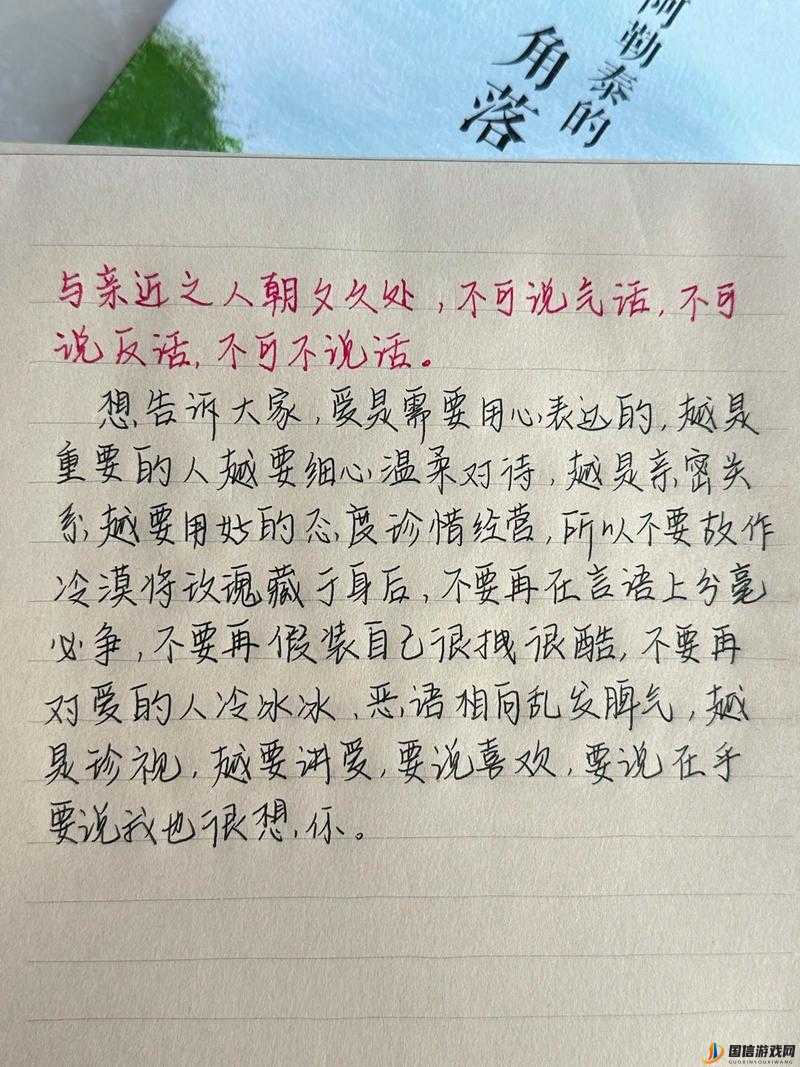 阿勒泰的
角落
与亲近之人朝夕久处,不可说气话,不可
说反话,不可不说话。
想告诉大家,爱是需要用心表达的,越是
重要的人越要细心温柔对待,越是亲密关
系越要用好的态度珍惜经营,所以不要故作
冷漠将玫瑰藏于身后,不要再在言语上分毫
必争,不要再假装自己很拽很酷,不要再
对爱的人冷冰冰、恶语相向乱发脾气,越
是珍视,越要讲爱,要说喜欢,要说在乎
要说我也很想你。
国信游戏网
GUOXINYOUXIWANG